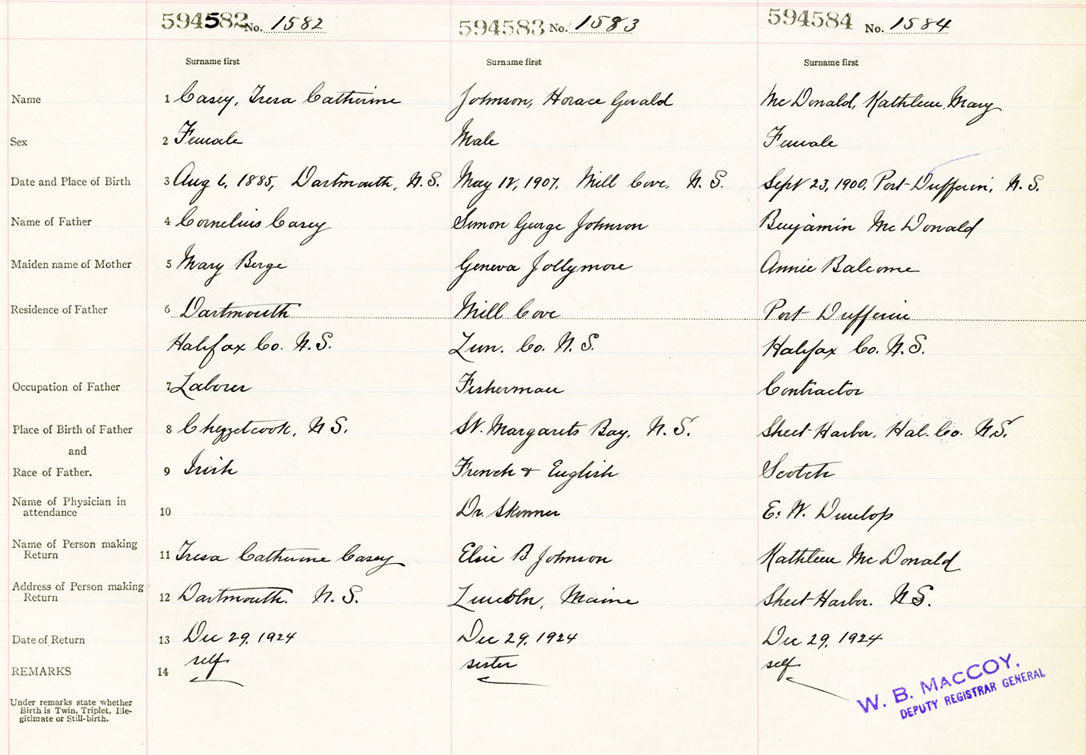 594582 No. 1582 594583 No. 1583 594584 No. 1584
Surname first Surname first Surname first
Name 1 Casey, Tresa Catherine Johnson, Horace Gerald McDonald, Kathleen Mary
Sex 2 Female Male Female
Date and Place of Birth 3 Aug 6, 1885, Dartmouth, N.S. May 12, 1907. Mill Cove, N.S. Sept 23, 1900, Port Dufferin, N.S.
Name of Father 4 Cornelius Casey Simon George Johnson Benjamin McDonald
Maiden name of Mother 5 Mary Berge Geneva Jollymore Annie Balcome
Residence of Father 6 Dartmouth Mill Cove Port Dufferin
Halifax Co. N.S. Lun. Co. N.S. Halifax Co. N.S.
Occupation of Father 7 Laborer Fisherman Contractor
Place of Birth of Father 8 Chezzetcook, N.S. St. Margarets Bay, N.S. Sheet Harbor, Hal. Co. N.S.
and
Race of Father. 9 Irish French & English Scotch
Name of Physician in
attendance 10 Dr. Skinner E. W. Dunlop
Name of Person making
Return 11 Tresa Catherine Casey Elsie B Johnson Kathleen McDonald
Address of Person making
Return 12 Dartmouth. N.S. Lincoln, Maine Sheet Harbor. N.S.
Date of Return 13 Dec 29, 1924 Dec 29, 1924 Dec 29, 1924
REMARKS 14 self sister self
Under remarks state whether
Birth is Twin, Triplet, Ille-
gitimate or Still-birth.
W. B. MACCOY,
DEPUTY REGISTRAR GENERAL